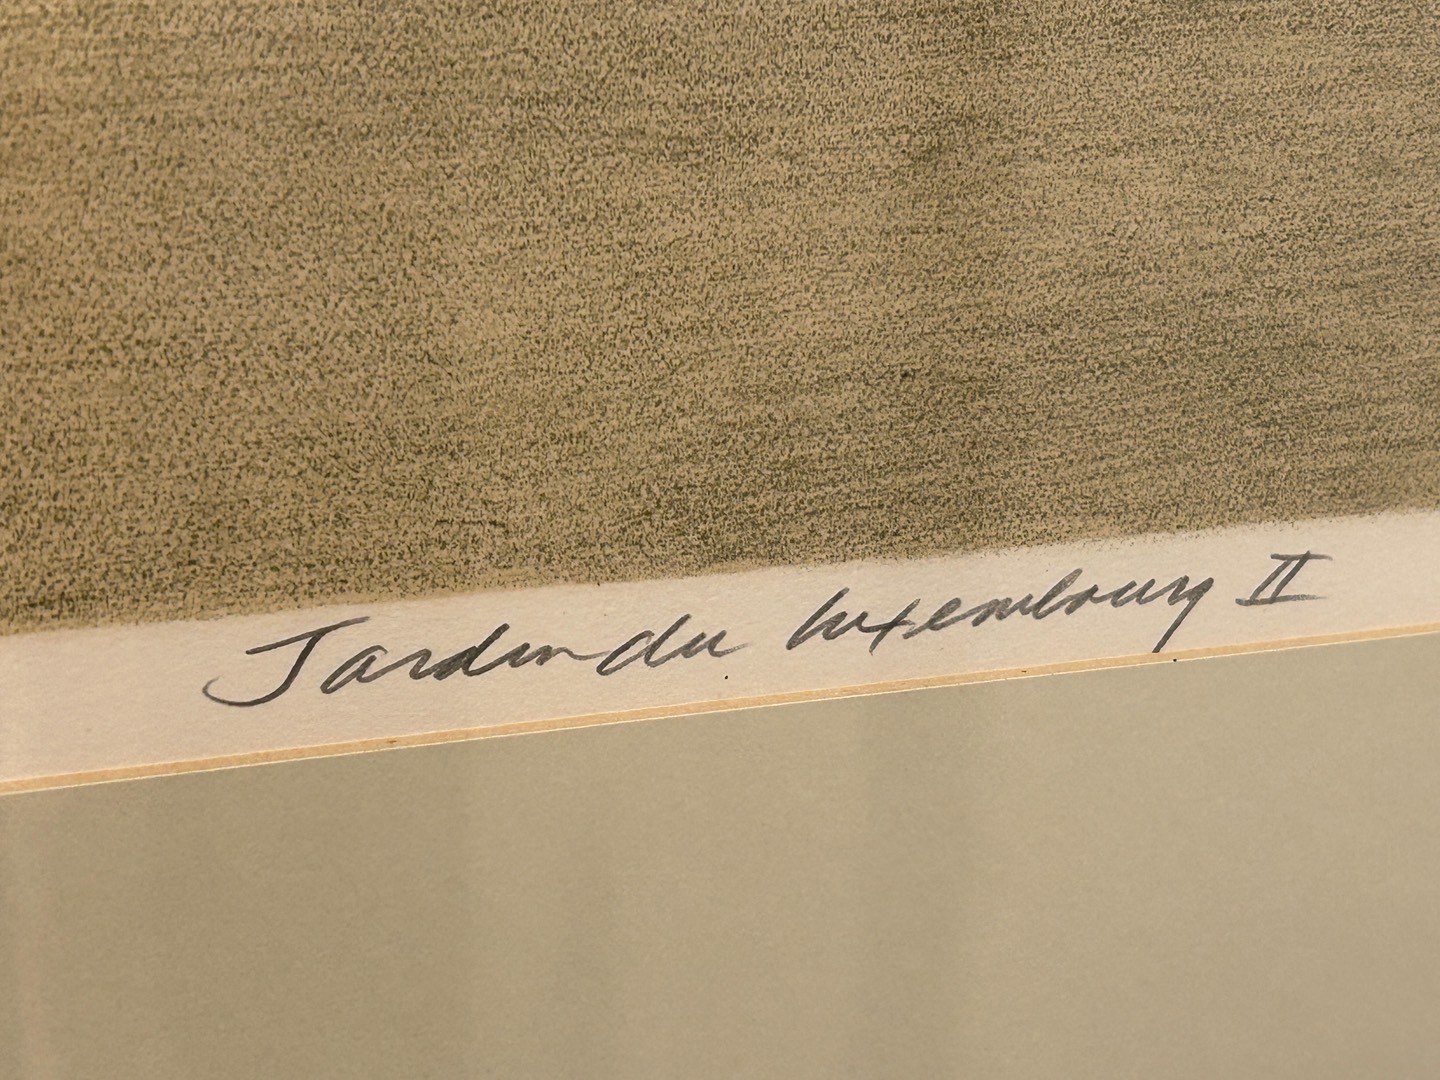 Jardin du Luxembourg II